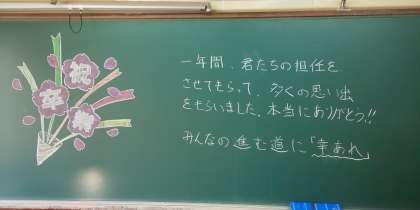 祝
卒業
一年間、君たちの担任を
させてもらって、多くの思い出
をもらいました。本当にありがとう!!
みんなの進む道に「幸あれ」